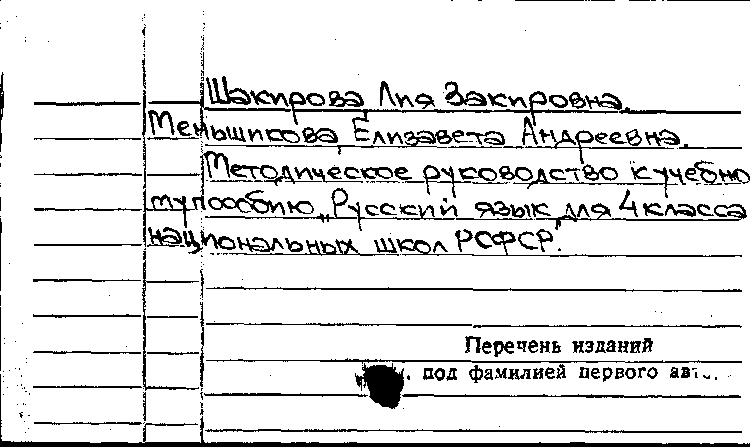 Шакирова Лия Закировна.
Меньшикова Елизавета Андреевна.
Методическое руководство к учебно
му пособию „Русский язык для 4 класса
национальных школ РСФСР".
Перечень изданий
под фамилией первого